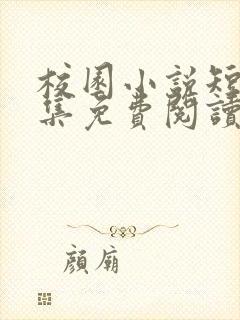 校園小說短
集免費閱讀
顔廟